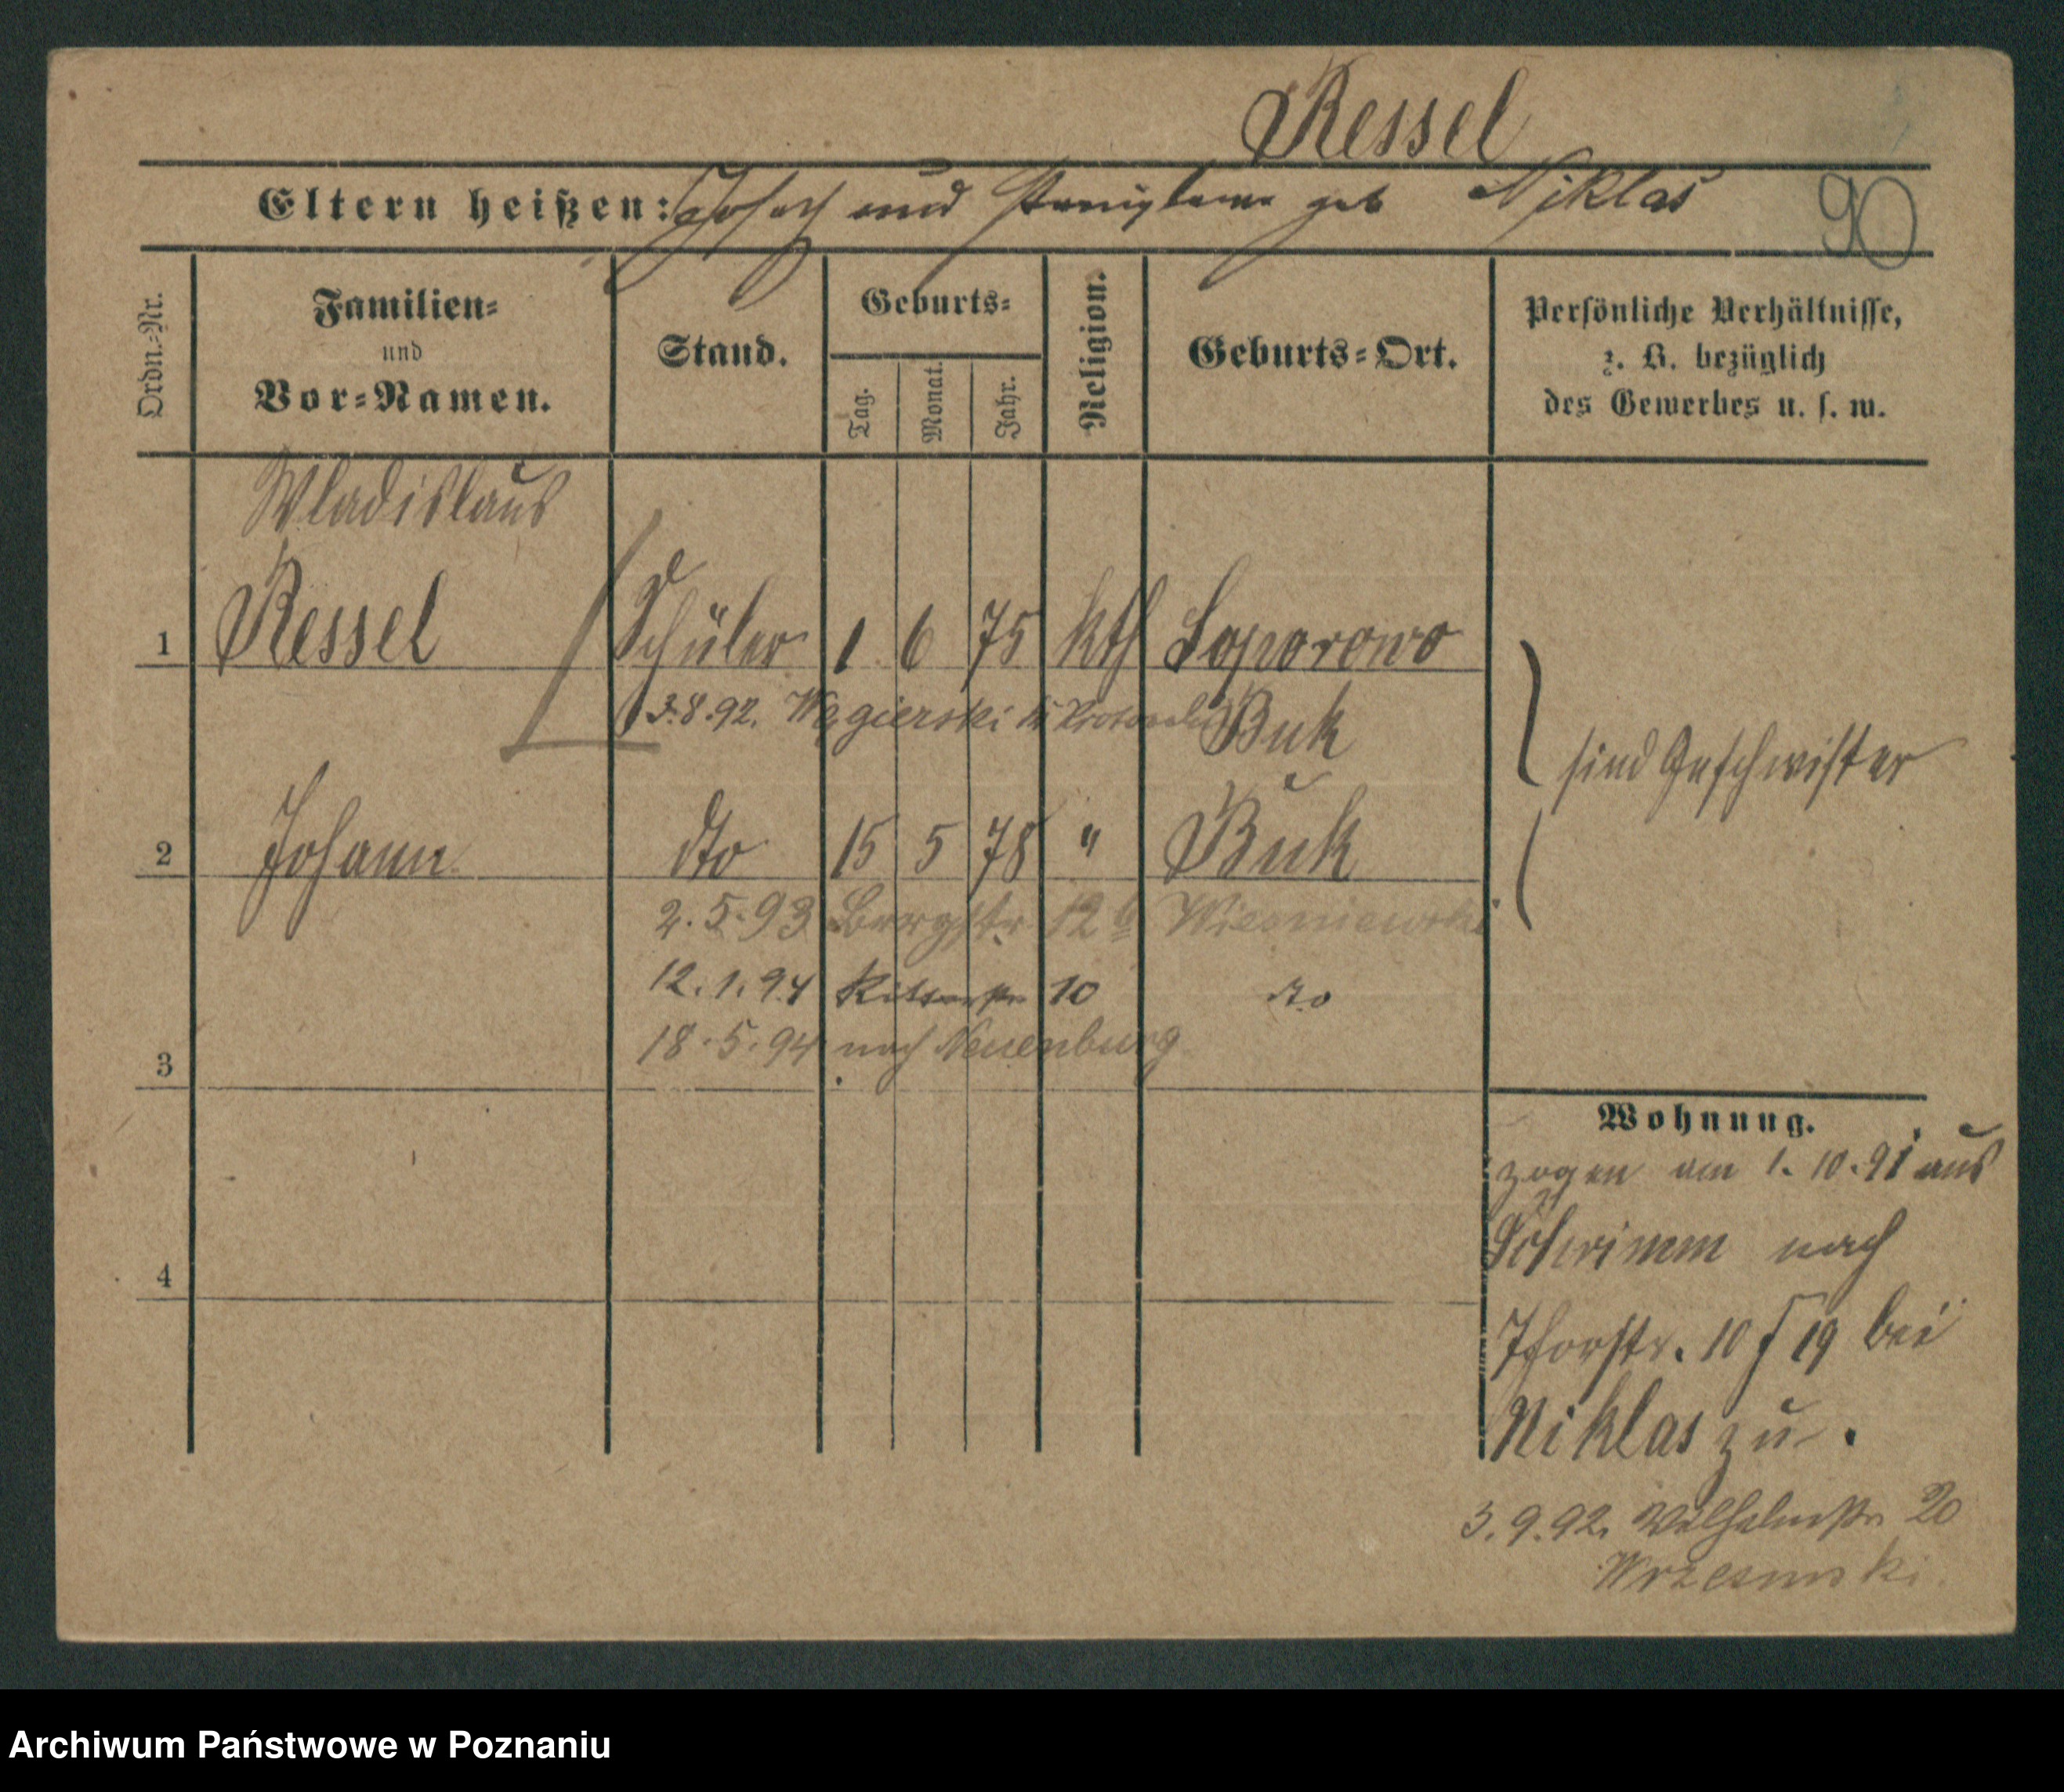 Ressel
Eltern heißen: Joseph und geb Niklas
90
Ordn.-Nr.
Familien-
und
Vor-Namen.
Stand.
Geburts-
Tag.
Monat.
Jahr.
Religion.
Geburts-Ort.
Persönliche Verhältnisse,
z. B. bezüglich
des Gewerbes u. s. w.
Wladislaus
1 Ressel Schüler 1 6 75 kth Loporowo
3.8.92. Węgierski
Buk
sind Geschwister
2 Johann dto 15 5 78 " Buk
2.5.93 Bergstr. 12b Wiesniewski
12.1.94 Ritterstr 10 dto
18.5.94 nach Neuenburg
3
4
Wohnung.
zogen am 1.10.91 aus
Schrimm nach
Thorstr. 10 19 bei
Niklas zu.
3.9.92. Wilhelmstr 20
Wrzesinski
Archiwum Państwowe w Poznaniu